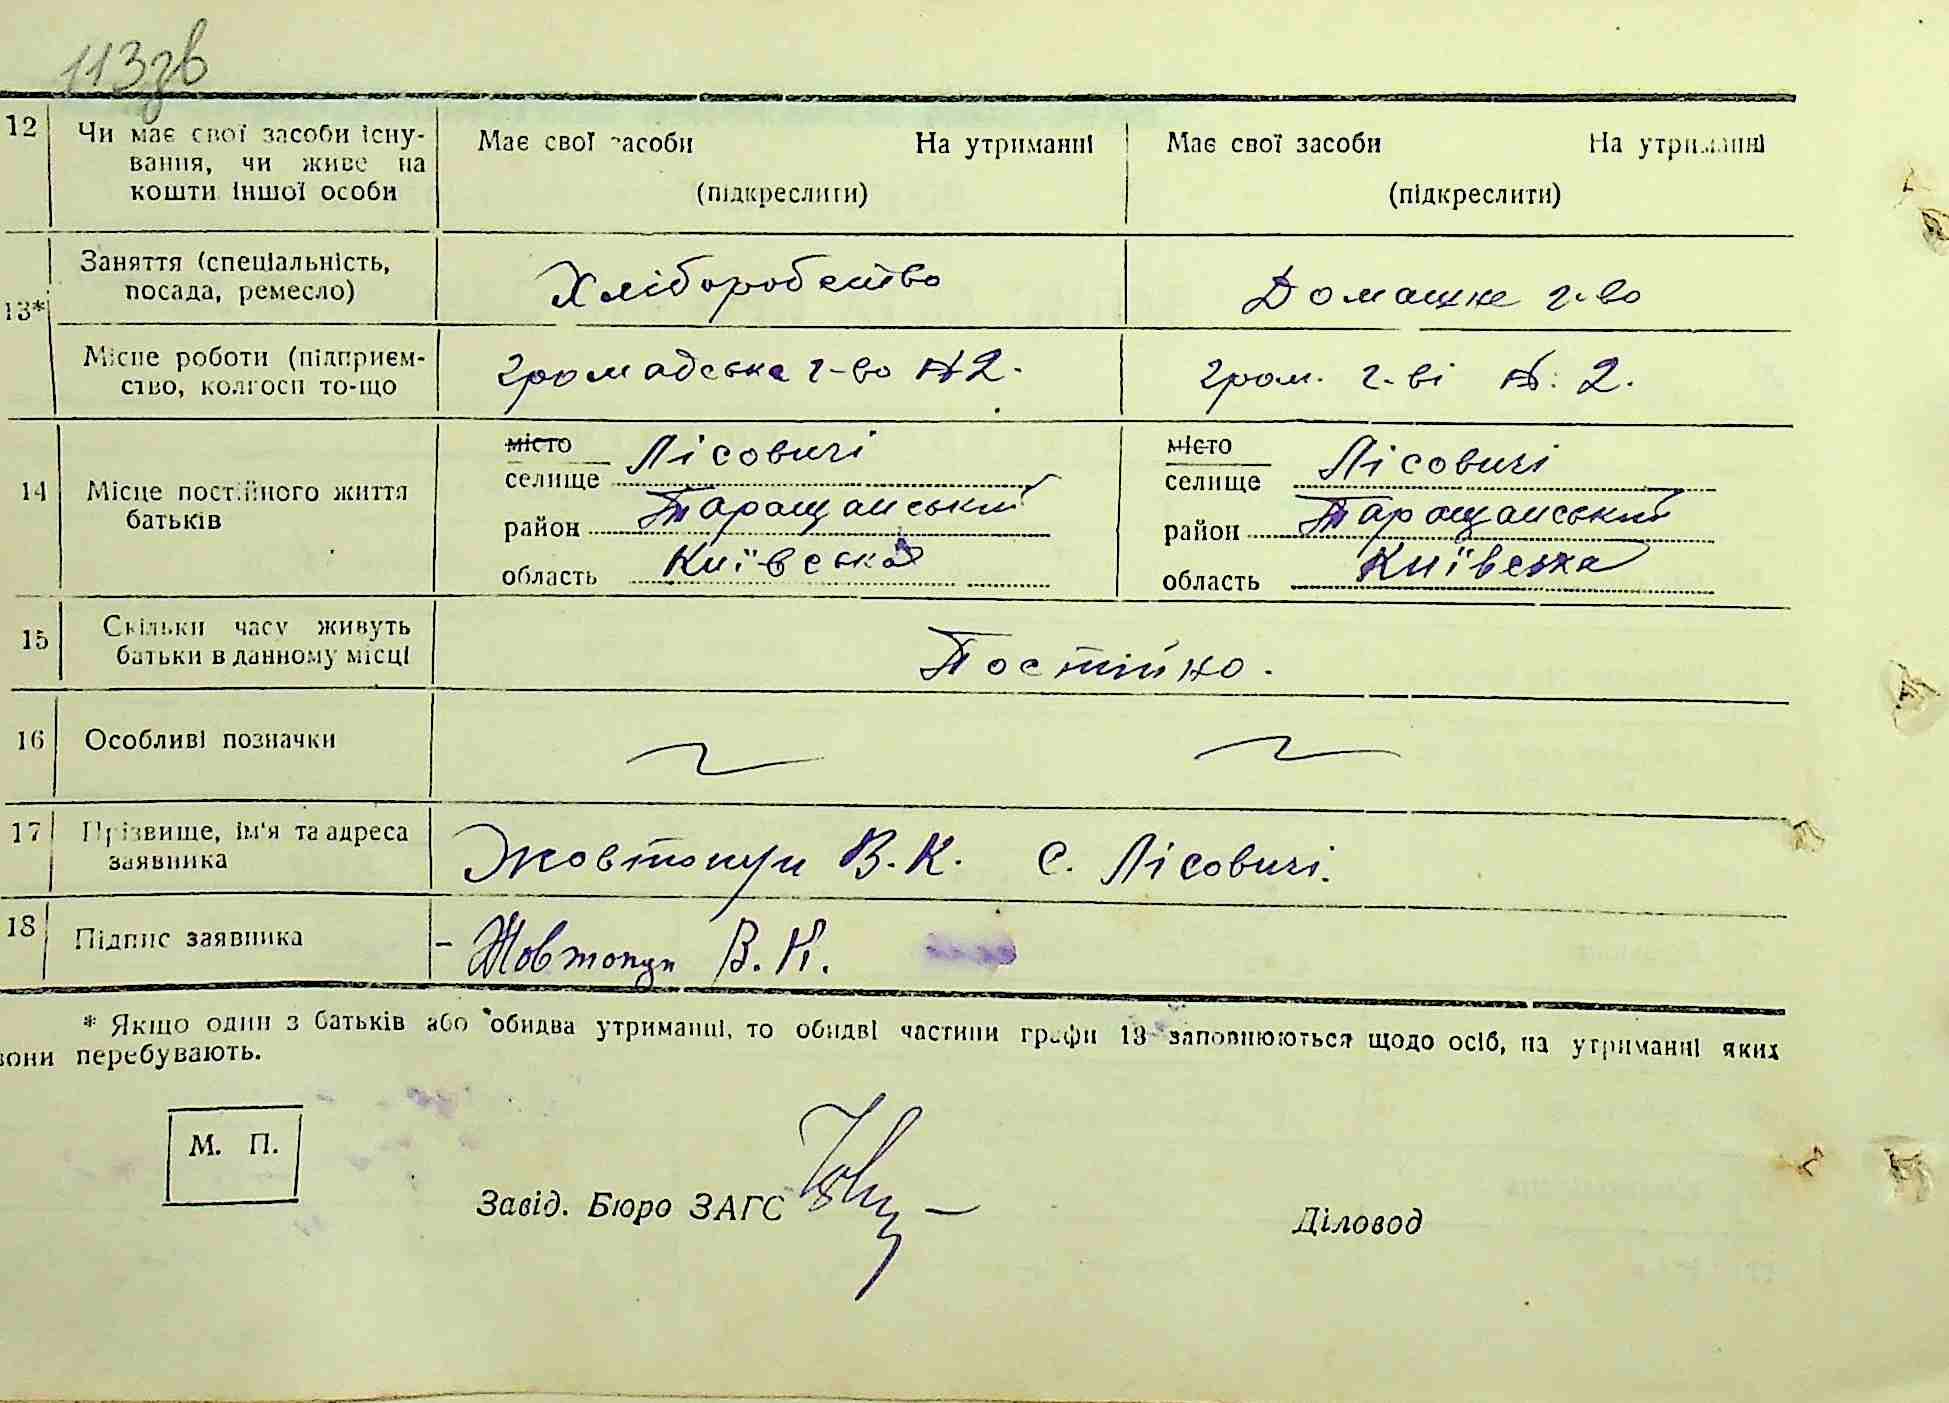 113зв
12 Чи має свої засоби існу- Має свої засоби На утриманні Має свої засоби На утриманні
вання, чи живе на
кошти іншої особи (підкреслити) (підкреслити)
13* Заняття (спеціальність, Хліборобство Домашнє г-во
посада, ремесло)
Місце роботи (підприєм- громадське г-во №2. гром. г-ві №: 2.
ство, колгосп то-що
14 Місце постійного життя батьків
місто Лісовичі місто Лісовичі
селище селище
район Таращанський район Таращанський
область Київська область Київська
15 Скільки часу живуть Постійно.
батьки в данному місці
16 Особливі позначки
17 Прізвище, ім'я та адреса Жовтопуп В. К. С. Лісовичі.
заявника
18 Підпис заявника - Жовтопуп В. К.
* Якщо один з батьків або обидва утриманні, то обидві частини графи 13 заповнюються щодо осіб, на утриманні яких
вони перебувають.
М. П.
Завід. Бюро ЗАГС Діловод